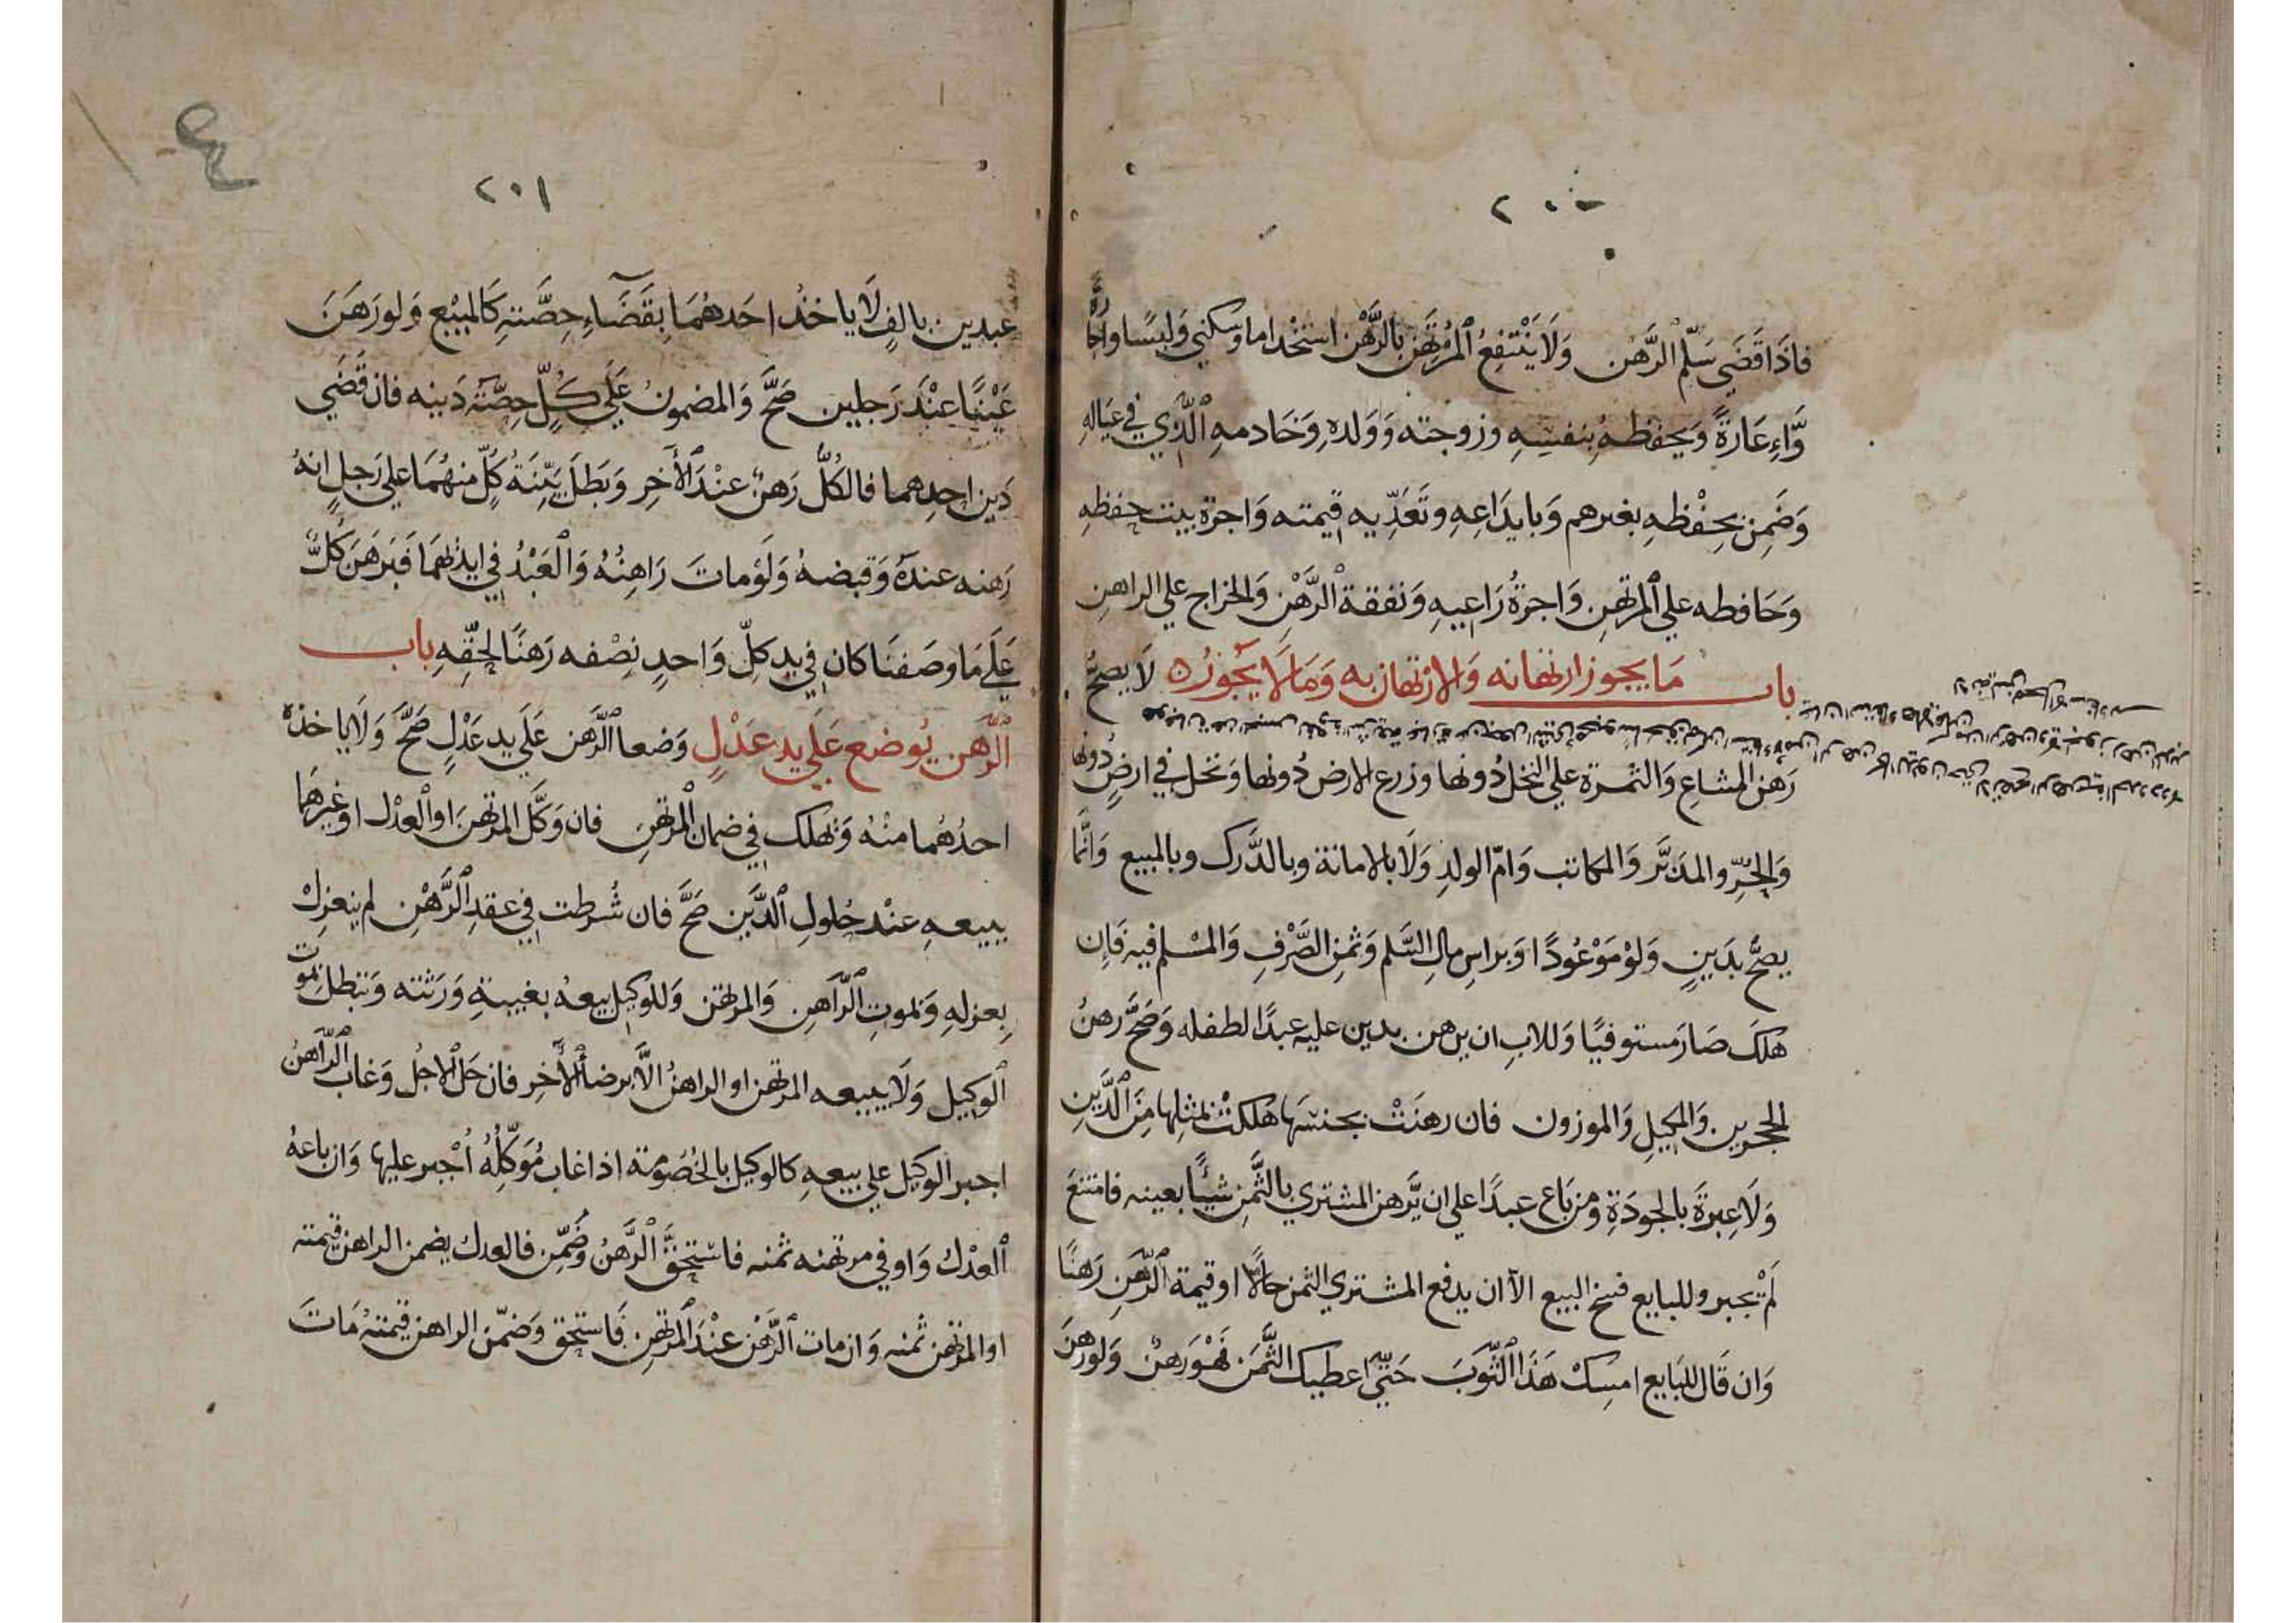 ٢٠٠
فاذَا قَضَي سَلّم الرَّهْن وَلَا يَنْتَفِعُ المُرْتَهِن بالرَّهْن استخْداما وسكني وَلبسًا واجا
رةً وَّاِعَارةً وَيحفظهُ بنفسِهِ وزوجته وَوَلدهِ وَخَادمهِ الَّذي في عيَالهِ
وَضَمِنَ بحِفْظهِ بغيرهم وَبايدَاعِهِ وتَعَدِّيه قيمته وَاجرة بيت حفظهِ
وَحَافطه علي المرتهِن وَاجرةُ رَاعِيهِ وَنفقة الرَّهْن وَالخراج علي الراهنِ
باب مَا يجوز ارتهانه وَالارتهان به وَمَا لَا يَجُوزُ لَا يصحُّ
رَهن المشاعِ وَالثمرة علي النخل دُونها وزرع الارض دُونها وَنخل في ارضٍ دُونها
وَالحُرِّ والمدَبَّر وَالمكاتب وَامّ الولدِ وَلَا بالامانة وبالدَّرَك وبالمبيع وَانَّمَا
يصحُّ بدَينٍ وَلوْ مَوْعُودًا وَبراسِ مالِ السَّلم وَثمنِ الصَّرْفِ وَالمسْلم فيه فَاِن
هلكَ صَارَ مستوفيًا وَللابِ ان يرهن بدين عليه عبدًا لطفله وَصَحَّ رهنُ
الحجرين وَالمكيلِ وَالموزون فان رهنَتْ بجنسهَا هَلكتْ بمثلِها مِنَ الدَّينِ
وَلَا عِبرَةَ بالجودَةِ وَمن بَاع عبدًا علي ان يَّرهن المشتري بالثَّمن شيئًا بعينه فامتنعَ
لَمْ يجبر وللبايع فسخ البيع الّا ان يدفع المشتري الثمن حالًّا او قيمة الرَّهنِ رَهنًا
وَان قَال للبَايع امسِكْ هَذَا الثَّوبَ حَتّي اعطيك الثَّمَن فَهْوَ رَهنٌ وَلو رهنَ
٢٠١
عبدين بالفٍ لَا ياخذُ احَدهُمَا بقَضَاءِ حِصَّتهِ كَالمبيْع وَلو رَهَنَ
عَيْنًا عنْدَ رَجلين صَحَّ وَالمضمونُ عَلَي كُلٍّ حِصَّة دَينه فان قَضَي
دَين احدِهما فالكُلُّ رَهنٌ عنْدَ الْأخرِ وَبَطلَ بيّنَةُ كُلّ منهُمَا علي رَجلٍ انهُ
رَهنه عندهُ وَقبضهُ وَلَوْ مات رَاهنُهُ وَالْعَبْدُ في ايديهمَا فَبَرهَنَ كُلٌّ
عَلَي مَا وصَفنَا كان في يد كلّ وَاحدٍ نِصْفه رَهنًا لحقّهِ باب
الرَّهن يُوضع عَلَي يد عَدْلٍ وَضعا الرَّهن عَلَي يد عَدْلٍ صَحَّ وَلَا ياخذهُ
احدُهُما منْهُ وَتهلك في ضمان المرتهِن فان وَكَّلَ المرتهِنَ او الْعدْل او غيرهُمَا
ببيعهِ عنْد حُلولِ الدَّين صَحَّ فان شُرطت في عقد الرَّهْنِ لم ينعزلْ
بِعزلهِ وَبموتِ الرَّاهنِ وَالمرتهن وَللوكيل بيعهُ بغيبةِ وَرَثته وَتبطل بموت
الوكيل وَلَا يبيعه المرتهن او الراهنُ الَّا برضا الْأخر فان حَلّ الْاجلُ وَغاب الرَّاهنُ
اجبر الوكيل علي بيعهِ كالوكيل بالخُصُومة اذا غاب مُوَكِّلُهُ اُجْبر عليها وَان باعهُ
العدْلُ وَاوفي مرتهنه ثمنه فاستحقَّ الرَّهنُ وَضُمِّن فالعدل يضمن الراهن قيمته
او المرتهن ثمنه وَان مات الرَّهْن عنْدَ المرتهِن فَاستحق وَضمّن الراهن قيمتهُ مَاتَ